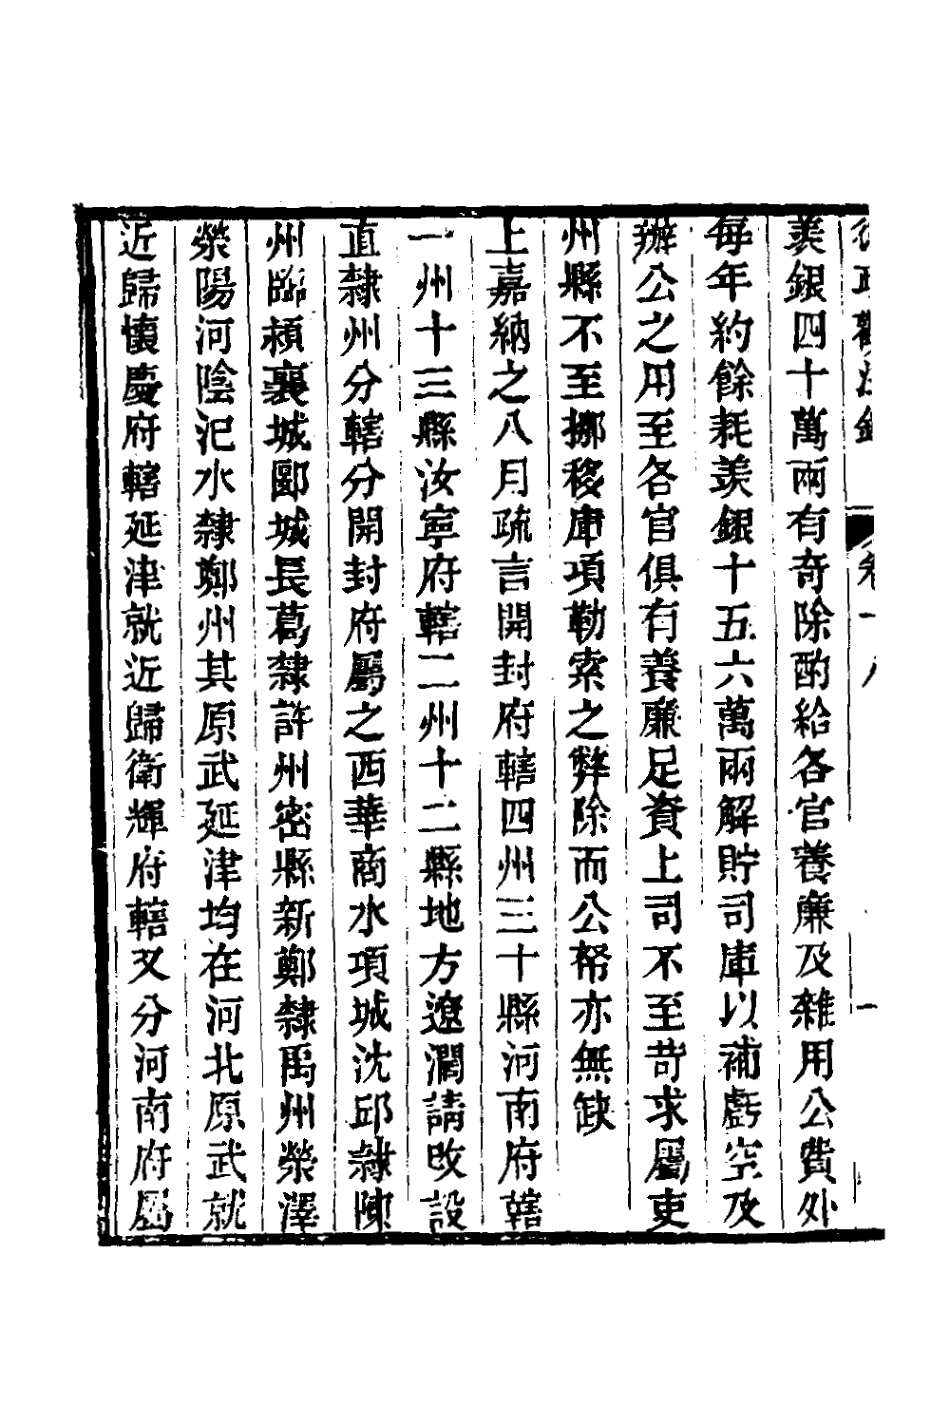 從政觀法錄 卷十八
羨銀四十萬兩有奇除酌給各官養廉及雜用公費外
每年約餘耗羨銀十五六萬兩解貯司庫以補虧空及
辦公之用至各官俱有養廉足資上司不至苛求屬吏
州縣不至挪移庫項勒索之弊除而公帑亦無缺
上嘉納之八月疏言開封府轄四州三十縣河南府轄
一州十三縣汝寧府轄二州十二縣地方遼濶請改設
直隸州分轄分開封府屬之西華商水項城沈邱隸陳
州臨潁襄城郾城長葛隸許州密縣新鄭隸禹州滎澤
滎陽河陰汜水隸鄭州其原武延津均在河北原武就
近歸懷慶府轄延津就近歸衛輝府轄又分河南府屬